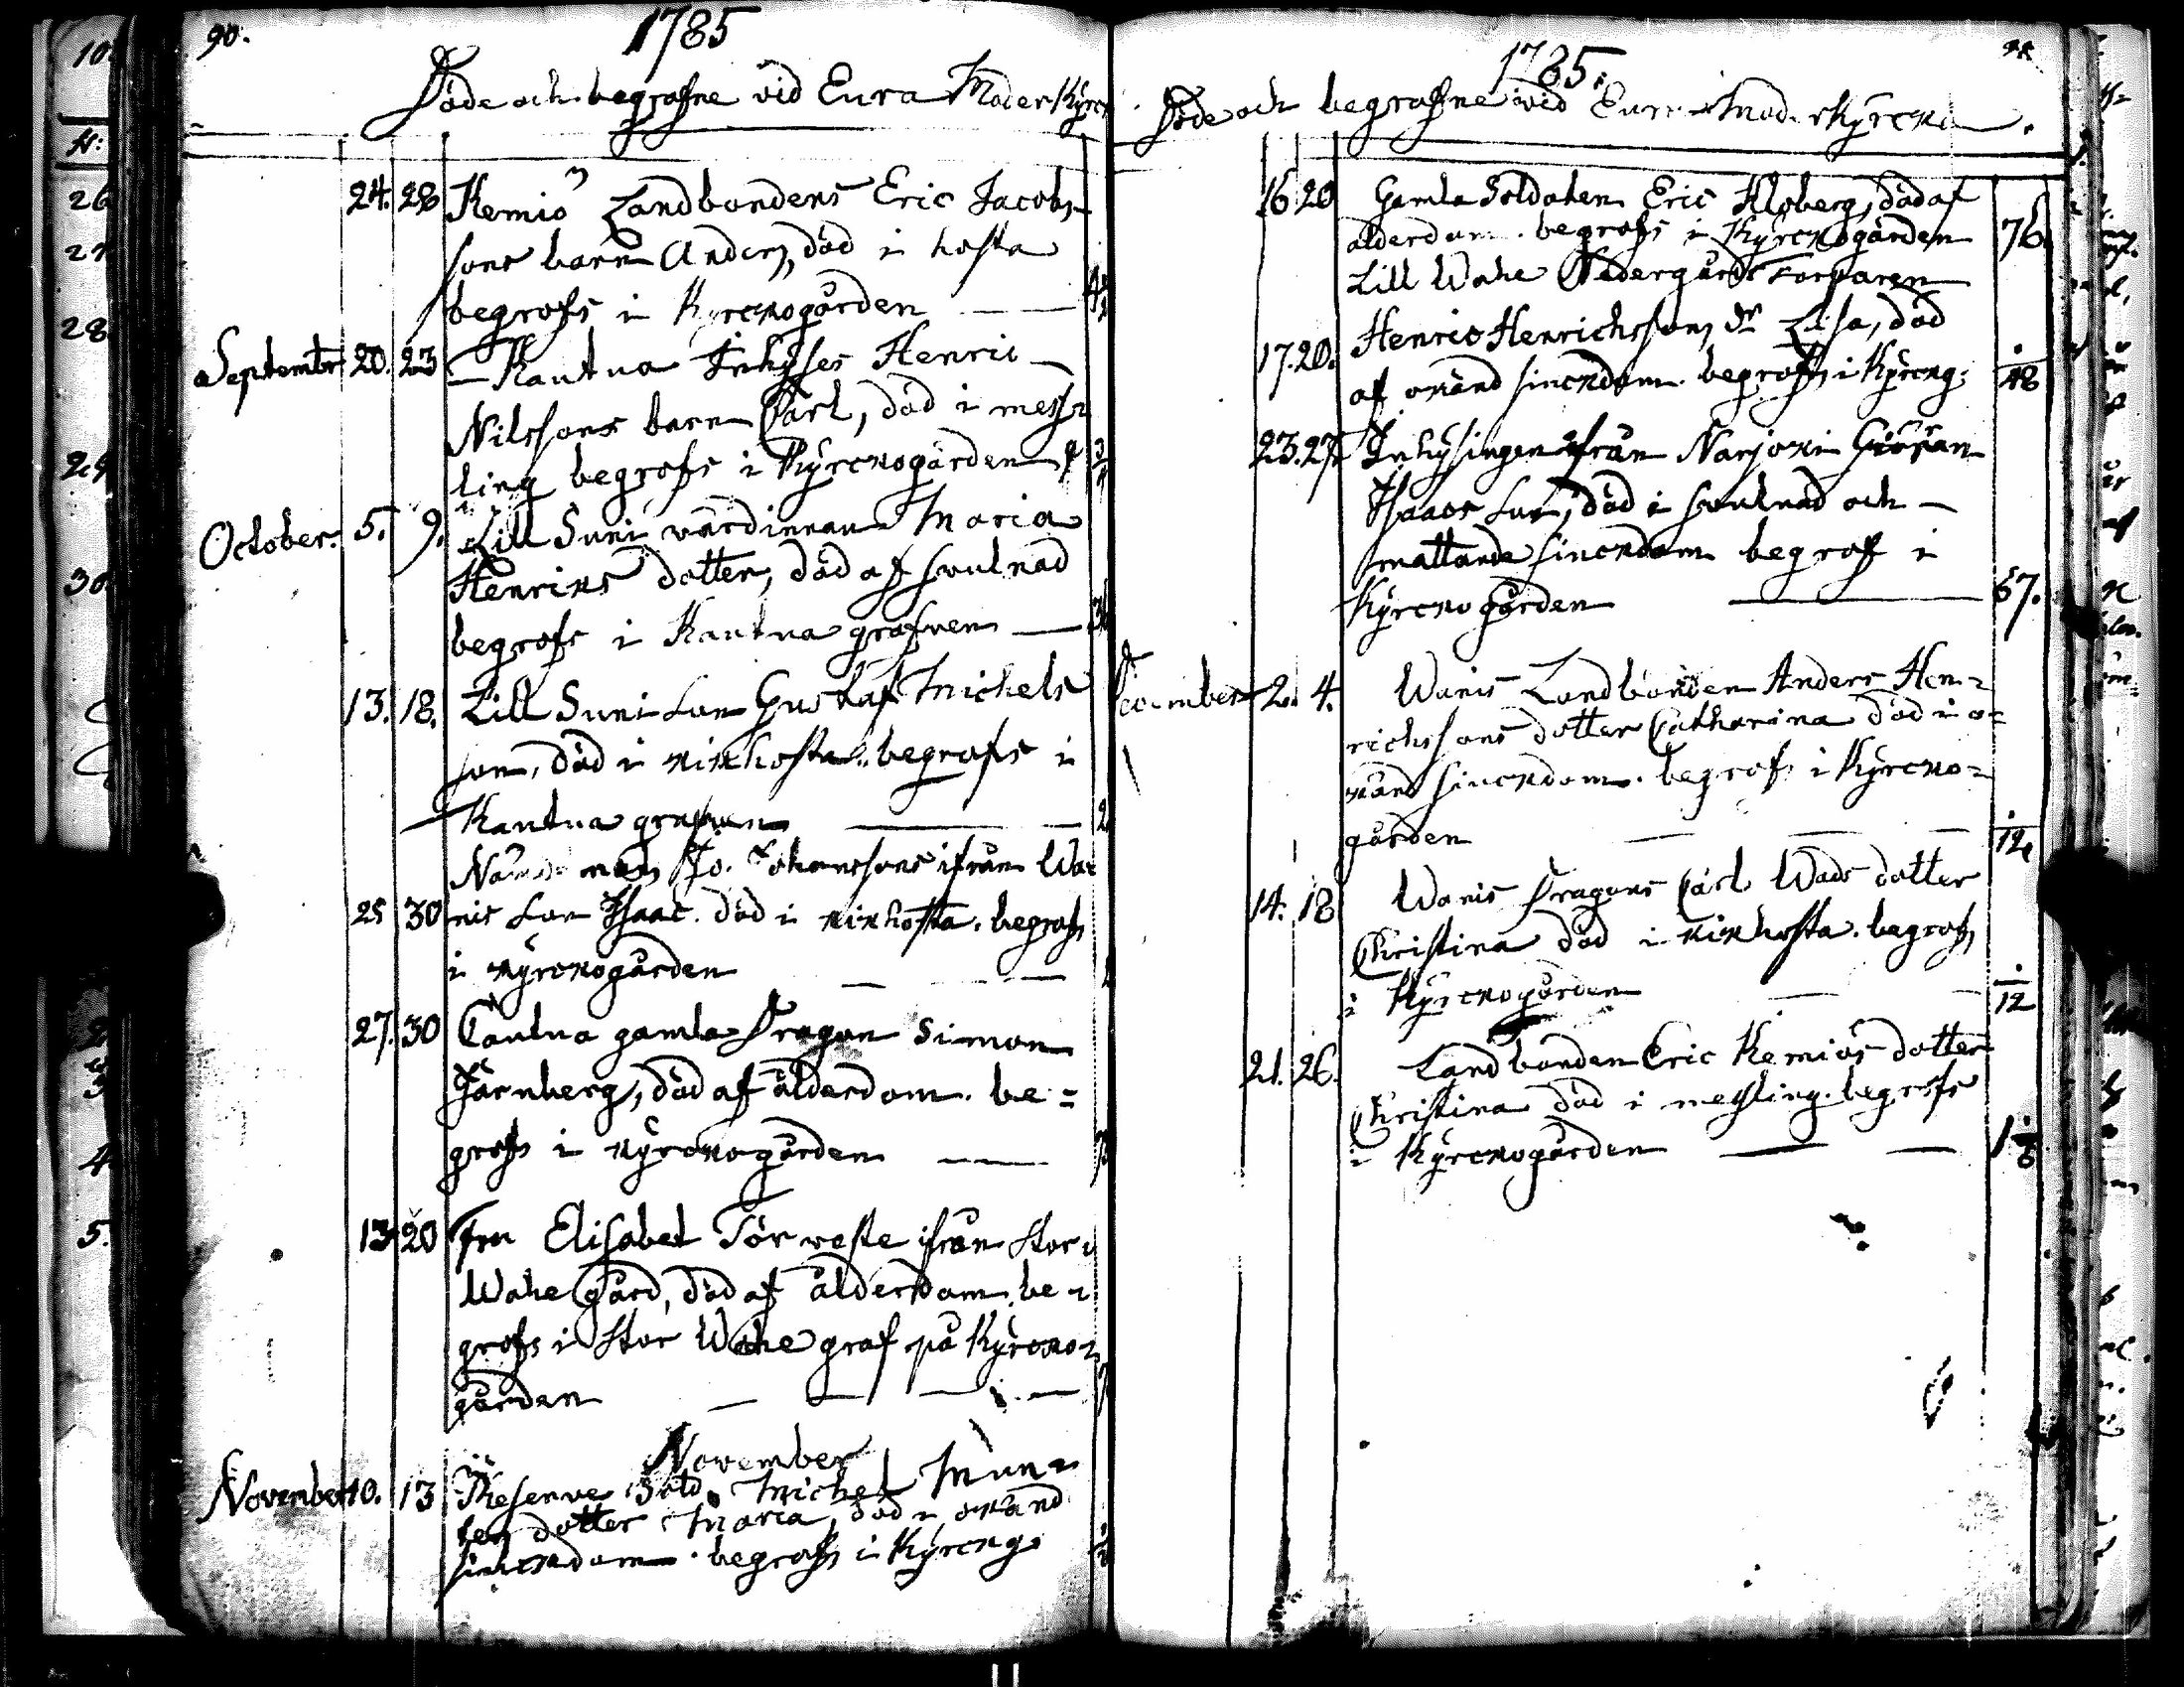 90.
1785
Döde och begrafne vid Eura Moder Kyrc
24. 28 Kemiö Landbondens Eric Jacobs
sons barn Anders, död i hosta
begrofs i Kyrckogården
September 20. 23 Kautua Inhyses Henric
Nilssons barn Carl, död i mess
ling begrofs i Kyrckogården
October. 5. 9. Lill Suni värdinnan Maria
Henriks dotter, död af svulnad
begrofs i Kautua grafven
13. 18. Lill Suni Son Gustaf Michels
son, död i kikhosta. begrofs i
Kautua grafven
Johanssons ifrån Wa
25 30 nis Son Isaac. död i kikhosta. begrofs
i kyrckogården
27. 30 Cautua gamla Dragon Simon
Järnberg, död af ålderdom. be=
grofs i kyrckogården
13 20 Fru Elisabet Törneste ifrån Stor
Wahe Gård, död af ålderdom. be=
grofs i Stor Wahe graf på Kyrcko=
gården
November
November 10. 13 Reserve Sold. Michel Mun=
ters dotter Maria, död i okänd
siuckdom. begrofs i Kyrckog:
1785.
Döde och begrafne vid Eura Moderkyrcka.
16 20 Gamla Soldaten Eric Kloberg, död af
ålderdom. begrofs i Kyrckogården 76.
Lill Wahe Nedergårds Torparen
17. 20. Henric Henrichssons dr Lisa, död
af okänd siuckdom. begrofs i Kyrckog: 18
23. 27. Inhysingen ifrån Narjoki Göran
Isaacs Son, död i svulnad och
mattande siuckdom begrof i
Kyrckogården 67.
December 2. 4. Wanis Landbonden Anders Hen=
richssons dotter Catharina död i o=
känd siuckdom. begrofs i Kyrcko=
gården 12
14. 18 Wanis Dragons Carl Wads dotter
Christina död i kikhosta. begrofs
i Kyrckogården 12
21. 26. Landbonden Eric Kemiös dotter
Christina död i messling. begrofs
i Kyrckogården